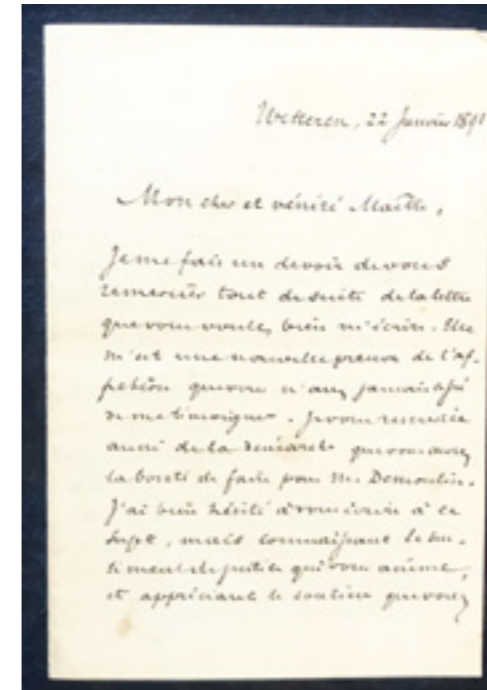 Wetteren, 22 Janvier 189
Mon cher et vénéré Maître,
Je me fais un devoir de vous
remercier tout de suite de la lettre
que vous voulez bien m'écrire. Elle
m'est une nouvelle preuve de l'af-
fection que vous n'avez jamais
de me témoigner. Je vous remercie
aussi de la démarche que vous avez
la bonté de faire pour Mr. Demoulin.
J'ai bien hésité à vous écrire à ce
sujet, mais connaissant le sen-
timent de justice qui vous anime,
et appréciant le soutien que vous